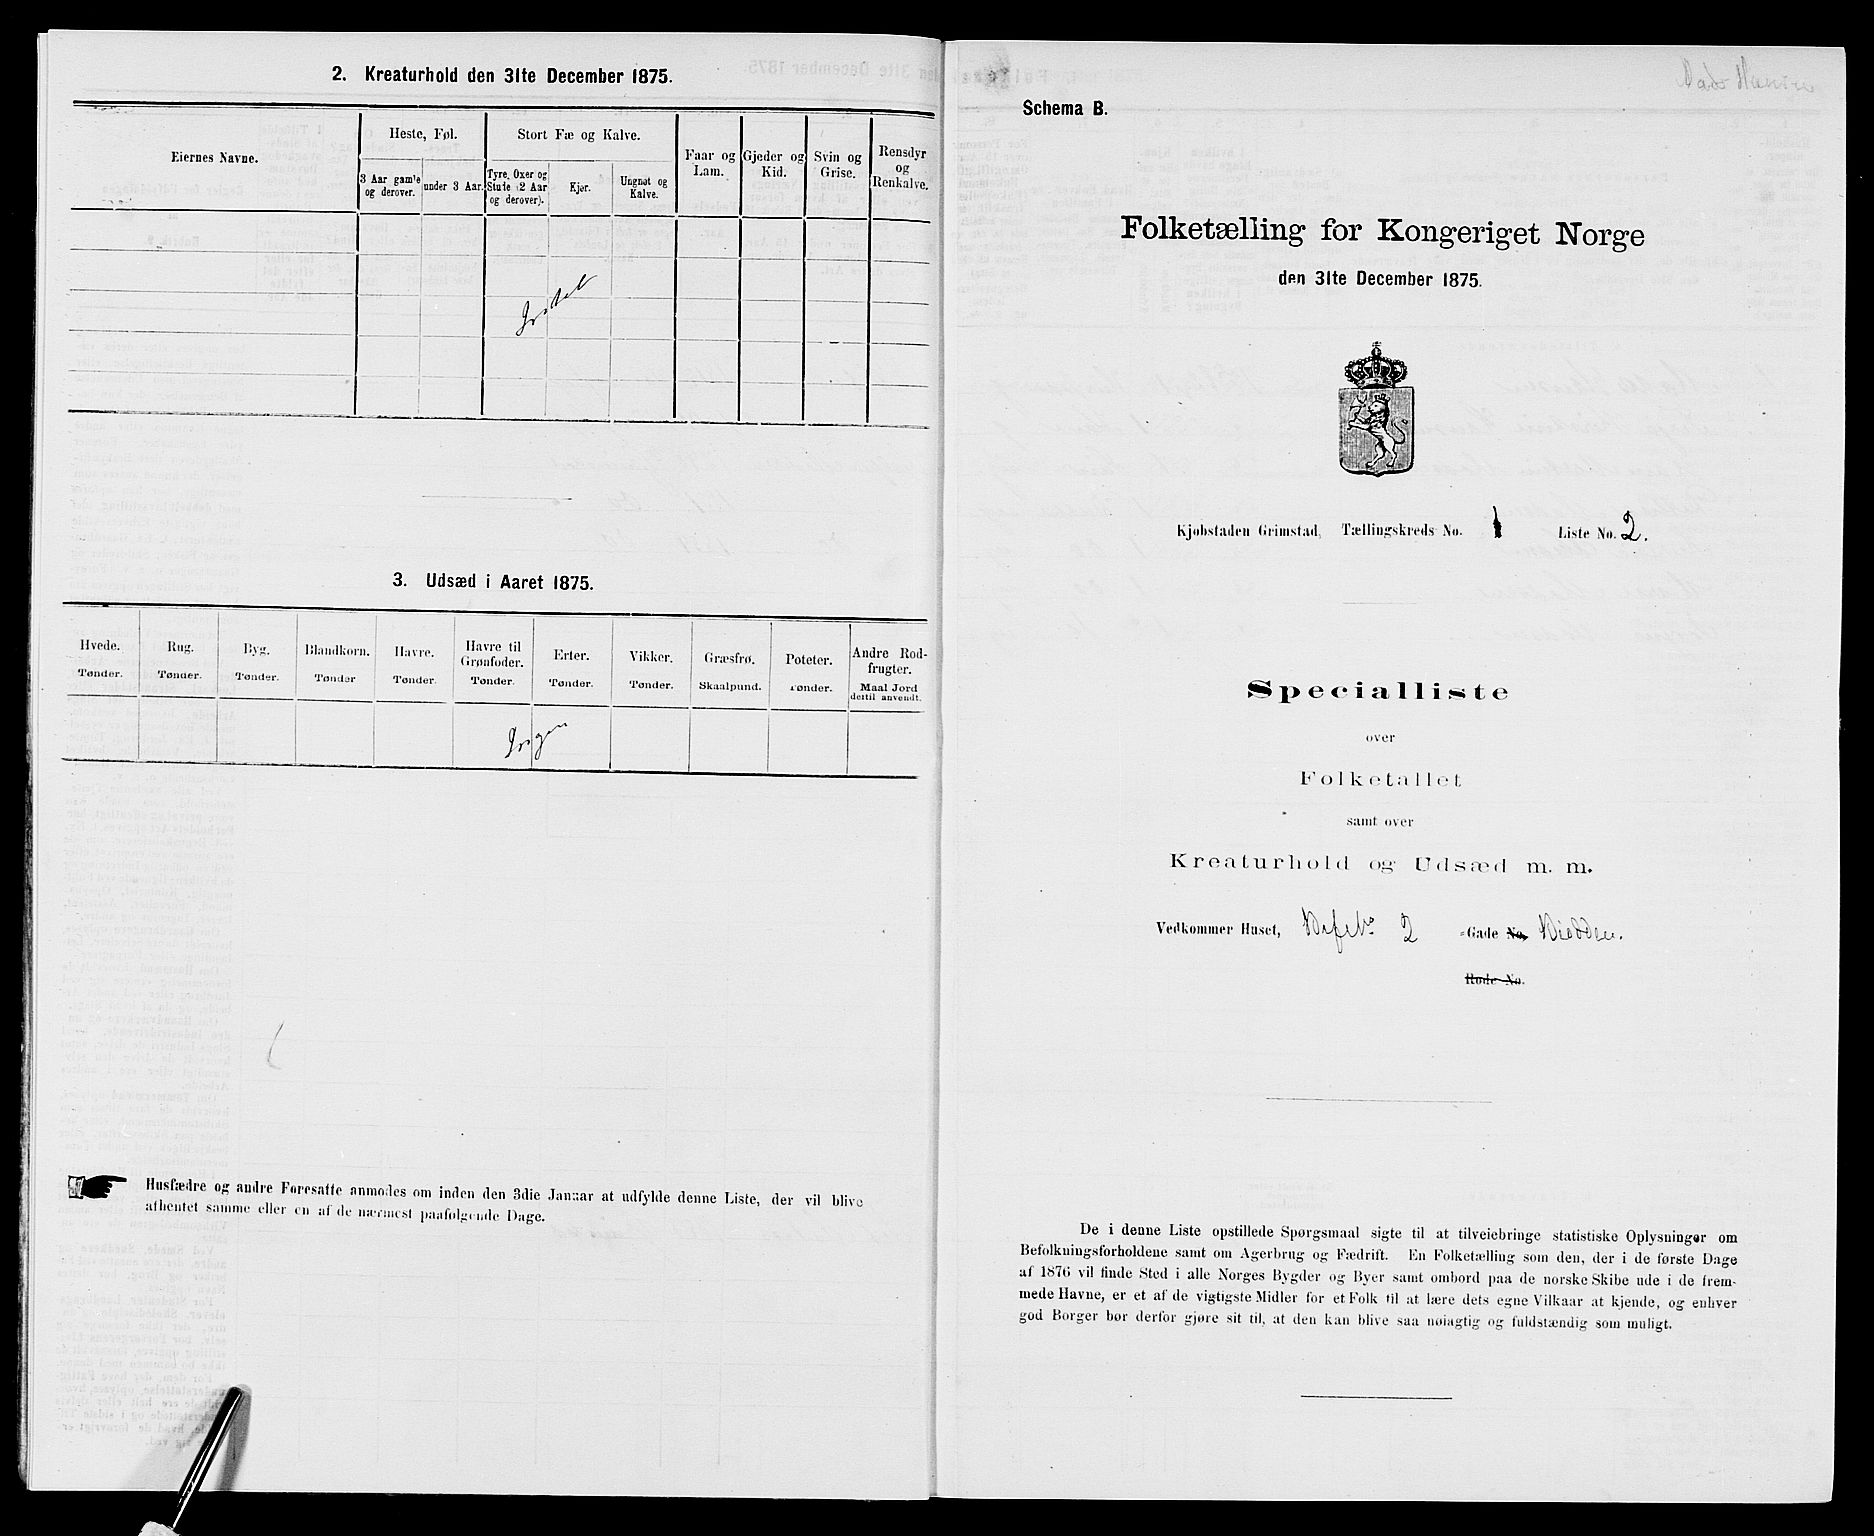 2. Kreaturhold den 31te December 1875.
Eiernes Navne.
Heste, Føl.
3 Aar gamle og derover.
under 3 Aar.
Stort Fæ og Kalve.
Tyre, Oxer og Stude (2 Aar og derover).
Kjør.
Ungnøt og Kalve.
Faar og Lam.
Gjeder og Kid.
Svin og Grise.
Rensdyr og Renkalve.
3. Udsæd i Aaret 1875.
Hvede.
Tønder.
Rug.
Tønder.
Byg.
Tønder.
Blandkorn.
Tønder
Havre.
Tønder.
Havre til Grønfoder.
Tønder.
Erter.
Tønder.
Vikker.
Tønder.
Græsfrø.
Skaalpund.
Poteter.
Tønder.
Andre Rodfrugter.
Maal Jord dertil anvendt.
Ingen
Husfædre og andre Foresatte anmodes om inden den 3die Januar at udfylde denne Liste, der vil blive
afhentet samme eller en af de nærmest paafølgende Dage.
Schema B.
Folketælling for Kongeriget Norge
den 31te December 1875.
Kjøbstaden Grimstad, Tællingskreds No. 1 Liste No. 2.
Specialliste
over
Folketallet
samt over
Kreaturhold og Udsæd m. m.
Vedkommer Huset, 2 -Gade No.
Rode No.
De i denne Liste opstillede Spørgsmaal sigte til at tilveiebringe statistiske Oplysninger om
Befolkningsforholdene samt om Agerbrug og Fædrift. En Folketælling som den, der i de første Dage
af 1876 vil finde Sted i alle Norges Bygder og Byer samt ombord paa de norske Skibe ude i de frem-
mede Havne, er et af de vigtigste Midler for et Folk til at lære dets egne Vilkaar at kjende, og enhver
god Borger bør derfor gjøre sit til, at den kan blive saa nøiagtig og fuldstændig som muligt.